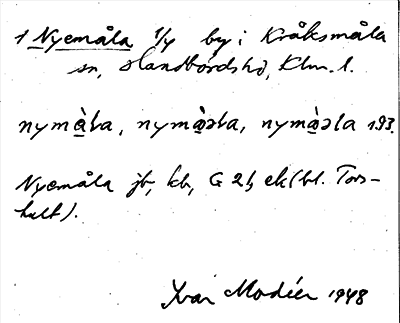 1 Nyemåla 1/4 by i Kråksmåla
sn, Handbördshd, Klm. l.
nymàla, nymàəla, nymàəla 193.
Nyemåla jb, kb, G 2b, ek (bl. Tors-
hult).
Ivar Modéer 1948